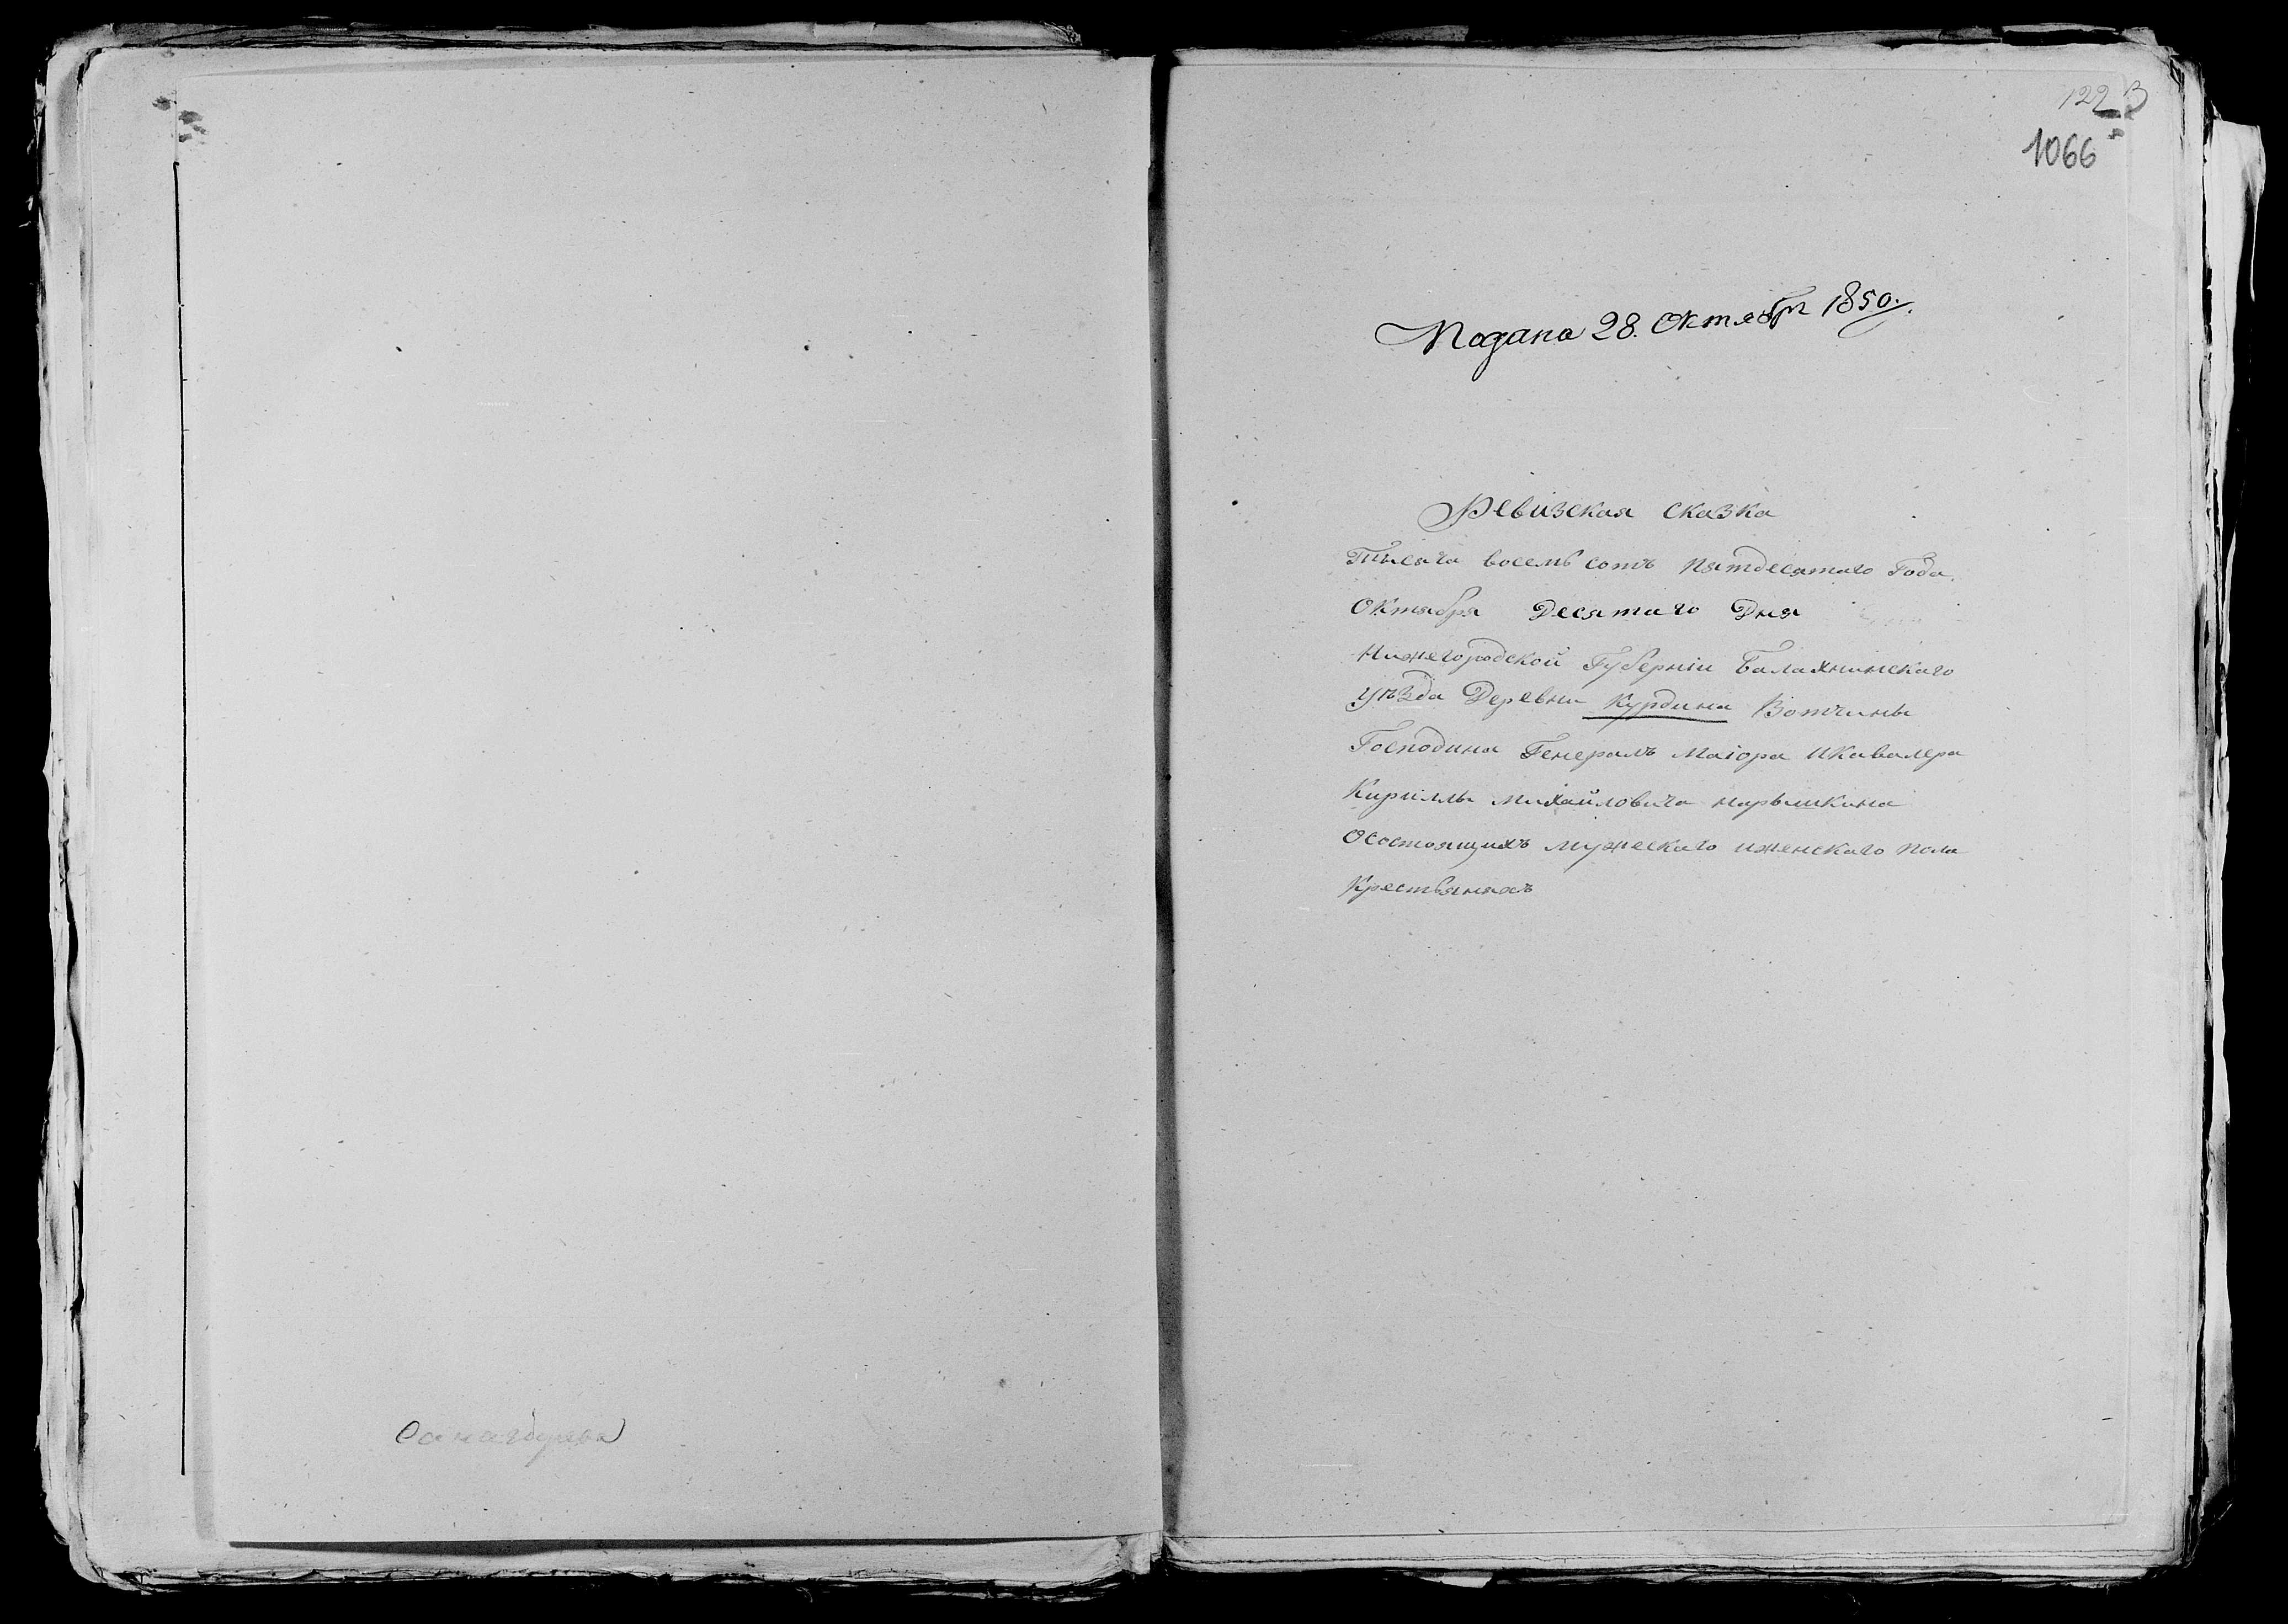 1066
Подана 28. Октября 1850.
Ревизская сказка
Тысяча восемь сотъ пятдесятаго Года.
Октября Десятаго Дня
Нижегородской Губерніи Балахнинскаго
уѣзда Деревни Курдина Вотчины
Господина Генералъ Маіора икавалера
Кириллы михайловича нарышкина
Осостоящихъ мужескаго иженскаго пола
Крестьянахъ